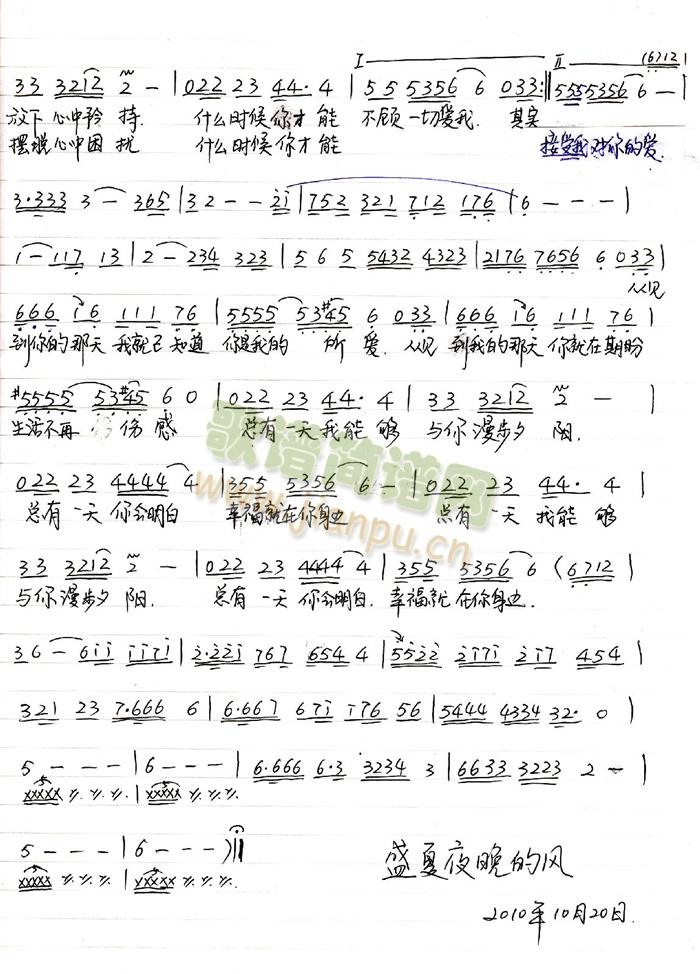 I II (6712)
33 3212 2 - | 022 23 44. 4 | 55 5356 6 033 :|| 555 5356 6 - |
放下 心中矜 持. 什么时候你才 能 不顾 一切爱我. 其实
摆脱心中困 扰 什么时候你才 能 接受我对你的爱.
3.333 3 - 365 | 32 - - 2i | 752 321 712 176 | 6 - - - |
1 - 117 13 | 2 - 234 323 | 5 6 5 5432 4323 | 2176 7656 6 033 |
从见
666 i6 111 76 | 5555 53#45 6 033 | 666 i6 111 76 |
到你的那天 我就已 知道 你是我的 所 爱. 从见 到我的那天 你就在期盼
#5555 53#45 6 0 | 022 23 44. 4 | 33 3212 2 - |
生活不再 伤 感 总有 一天 我能 够 与你漫步夕 阳.
022 23 4444 4 | 355 5356 6 - | 022 23 44. 4 |
总有 一天 你会明白 幸福就在你身边 总有 一天 我能 够
33 3212 2 - | 022 23 4444 4 | 355 5356 6 (6712 |
与你漫步夕 阳. 总有 一天 你会明白. 幸福就 在你身边.
36 - 6ii ii7i | 2.22i 767 654 4 | 5522 2i7i 2i7 454 |
321 23 7.666 6 | 6.667 67i i76 56 | 5444 4334 32. 0 |
5 - - - | 6 - - - | 6.666 6.3 3234 3 | 6633 3223 2 - |
xxxxx 〃.〃.〃. | xxxxx 〃.〃.〃.
5 - - - | 6 - - - )||
xxxxx 〃.〃.〃. | xxxxx 〃.〃.〃.
盛夏夜晚的风
2010年10月20日.
歌谱简谱网
www.jianpu.cn